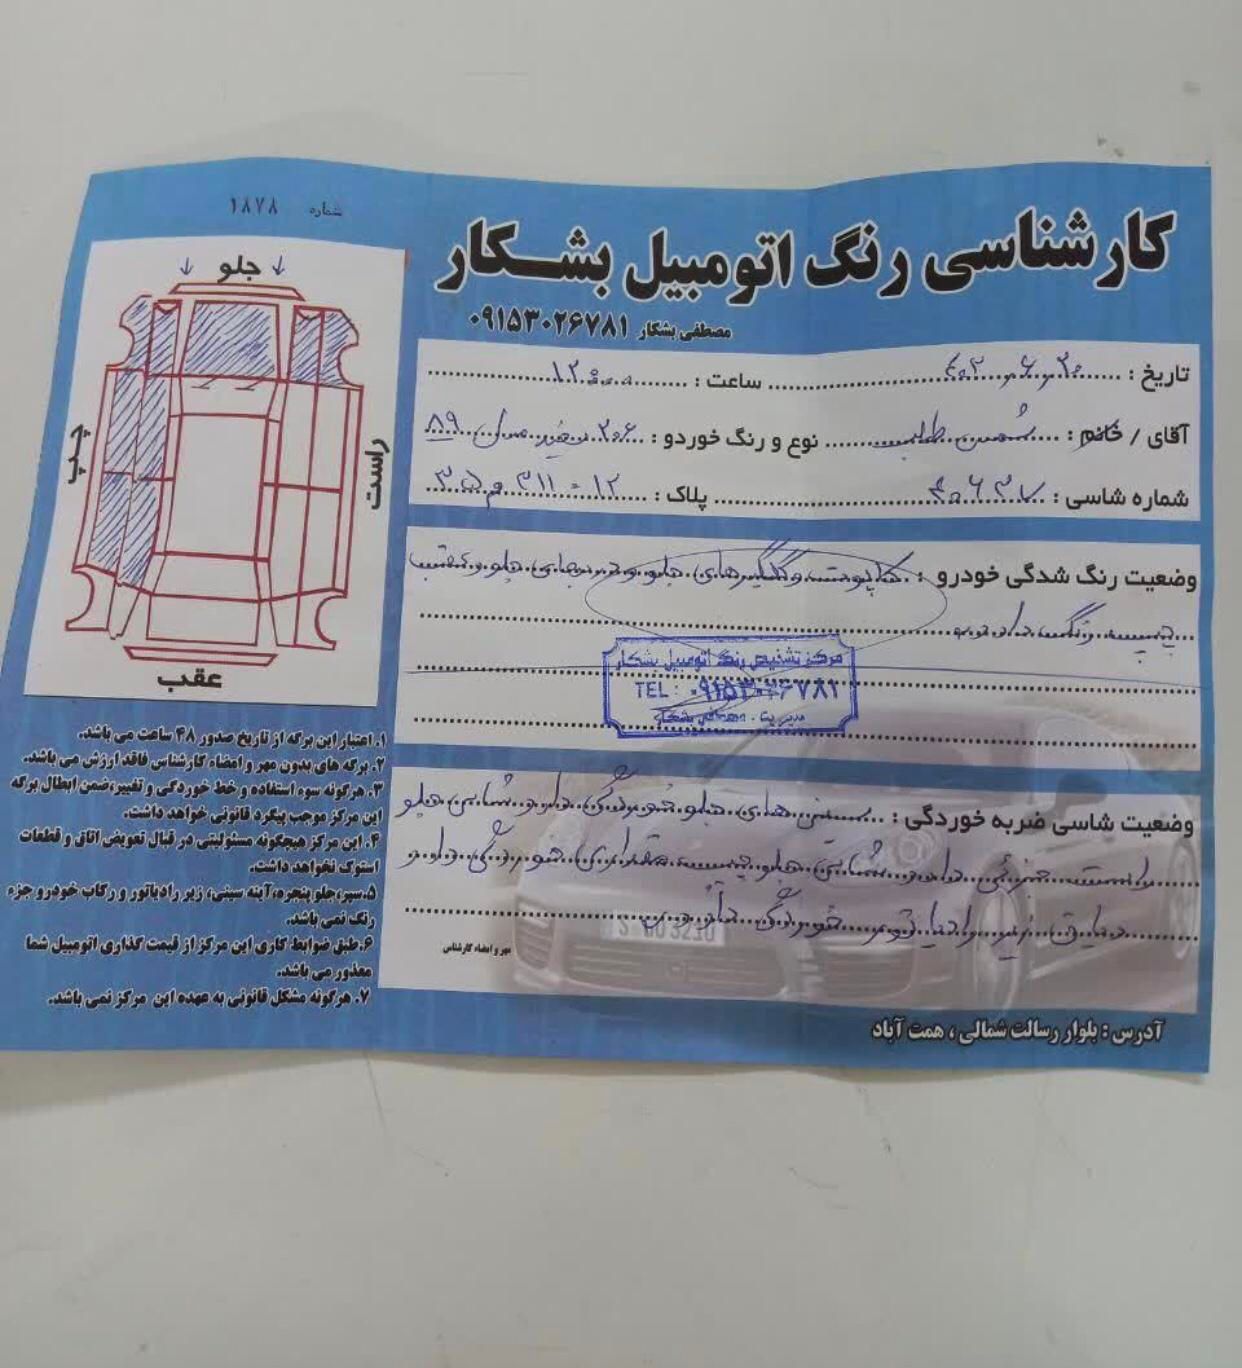 شماره ۱۸۷۸
کارشناسی رنگ اتومبیل بشکار
مصطفی بشکار ۰۹۱۵۳۰۲۶۷۸۱
↓ جلو ↓
چپ
راست
عقب
تاریخ : ۴۰۲,۶,۲۰ ساعت : ۱۲:۰۰
آقای / خانم : طلب نوع و رنگ خوردو : ۲۰۶ سفید مدل ۸۹
شماره شاسی : ۴۰۶۳۷ پلاک : ۱۲ - ۳۱۱ م ۳۵
وضعیت رنگ شدگی خودرو : کاپوت و گلگیرهای جلو و دربهای جلو و عقب
چپ رنگ دارد
مرکز تشخیص رنگ اتومبیل بشکار
TEL : ۰۹۱۵۳۰۲۶۷۸۱
مدیریت : مصطفی بشکار
وضعیت شاسی ضربه خوردگی : سینی های جلو خوردگی دارد شاسی جلو
راست جزئی دارد شاسی جلو چپ مقداری خوردگی دارد
زیر رادیاتور خوردگی دارد
مهر و امضاء کارشناس
۱. اعتبار این برگه از تاریخ صدور ۴۸ ساعت می باشد.
۲. برگه های بدون مهر و امضاء کارشناس فاقد ارزش می باشد.
۳. هرگونه سوء استفاده و خط خوردگی و تغییر،ضمن ابطال برگه
این مرکز موجب پیگرد قانونی خواهد داشت.
۴. این مرکز هیچگونه مسئولیتی در قبال تعویض اتاق و قطعات
استوک نخواهد داشت.
۵.سپر،جلو پنجره،آینه سینی، زیر رادیاتور و رکاب خودرو جزء
رنگ نمی باشد.
۶.طبق ضوابط کاری این مرکز از قیمت گذاری اتومبیل شما
معذور می باشد.
۷. هرگونه مشکل قانونی به عهده این مرکز نمی باشد.
آدرس : بلوار رسالت شمالی ، همت آباد